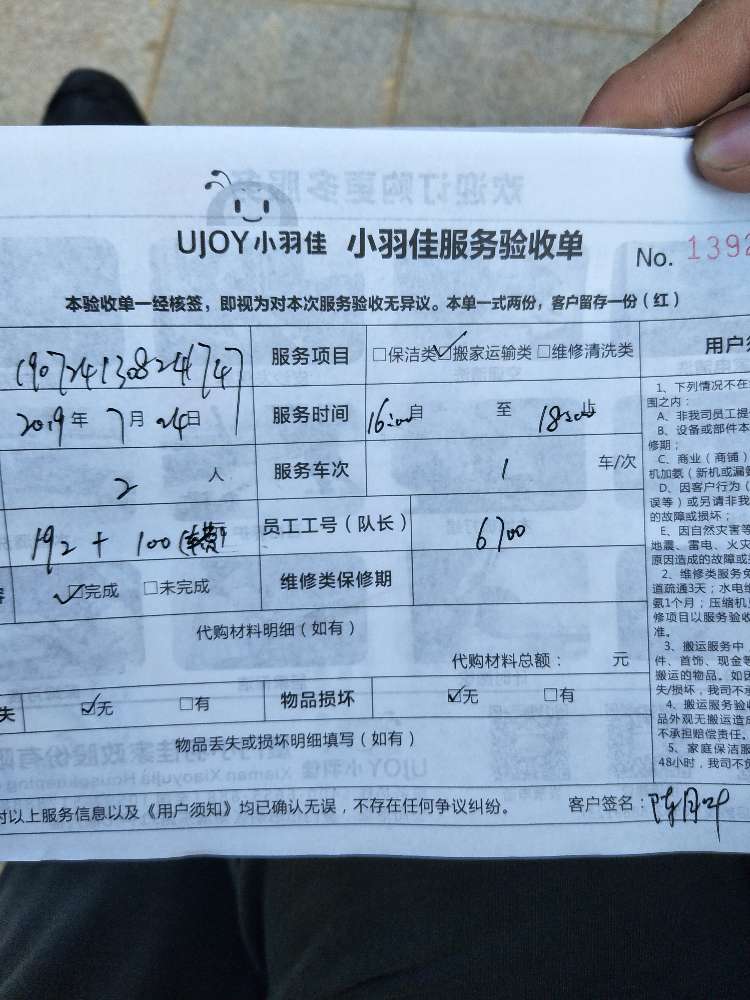 UJOY小羽佳 小羽佳服务验收单 No. 1392
本验收单一经核签，即视为对本次服务验收无异议。本单一式两份，客户留存一份（红）
19072413082474 服务项目 □保洁类 ☑搬家运输类 □维修清洗类
2019年7月24日 服务时间 16:00自 至 18:00止
2 人 服务车次 1 车/次
192 + 100 员工工号（队长） 6700
☑完成 □未完成 维修类保修期
代购材料明细（如有）
代购材料总额： 元
失 ☑无 □有 物品损坏 ☑无 □有
物品丢失或损坏明细填写（如有）
对以上服务信息以及《用户须知》均已确认无误，不存在任何争议纠纷。 客户签名：
用户须
1、下列情况不在
围之内：
A、非我司员工提
B、设备或部件本
修期；
C、商业（商铺）
机加氨（新机或漏氨
D、因客户行为（
误等）或另请非我
的故障或损坏；
E、因自然灾害等
地震、雷电、火灾
原因造成的故障或
2、维修类服务免
道疏通3天；水电维
氨1个月；压缩机
修项目以服务验收
准。
3、搬运服务中，
件、首饰、现金等
搬运的物品。如因
失/损坏，我司不承
4、搬运服务验收
品外观无搬运造成
不承担赔偿责任。
5、家庭保洁服
48小时，我司不负